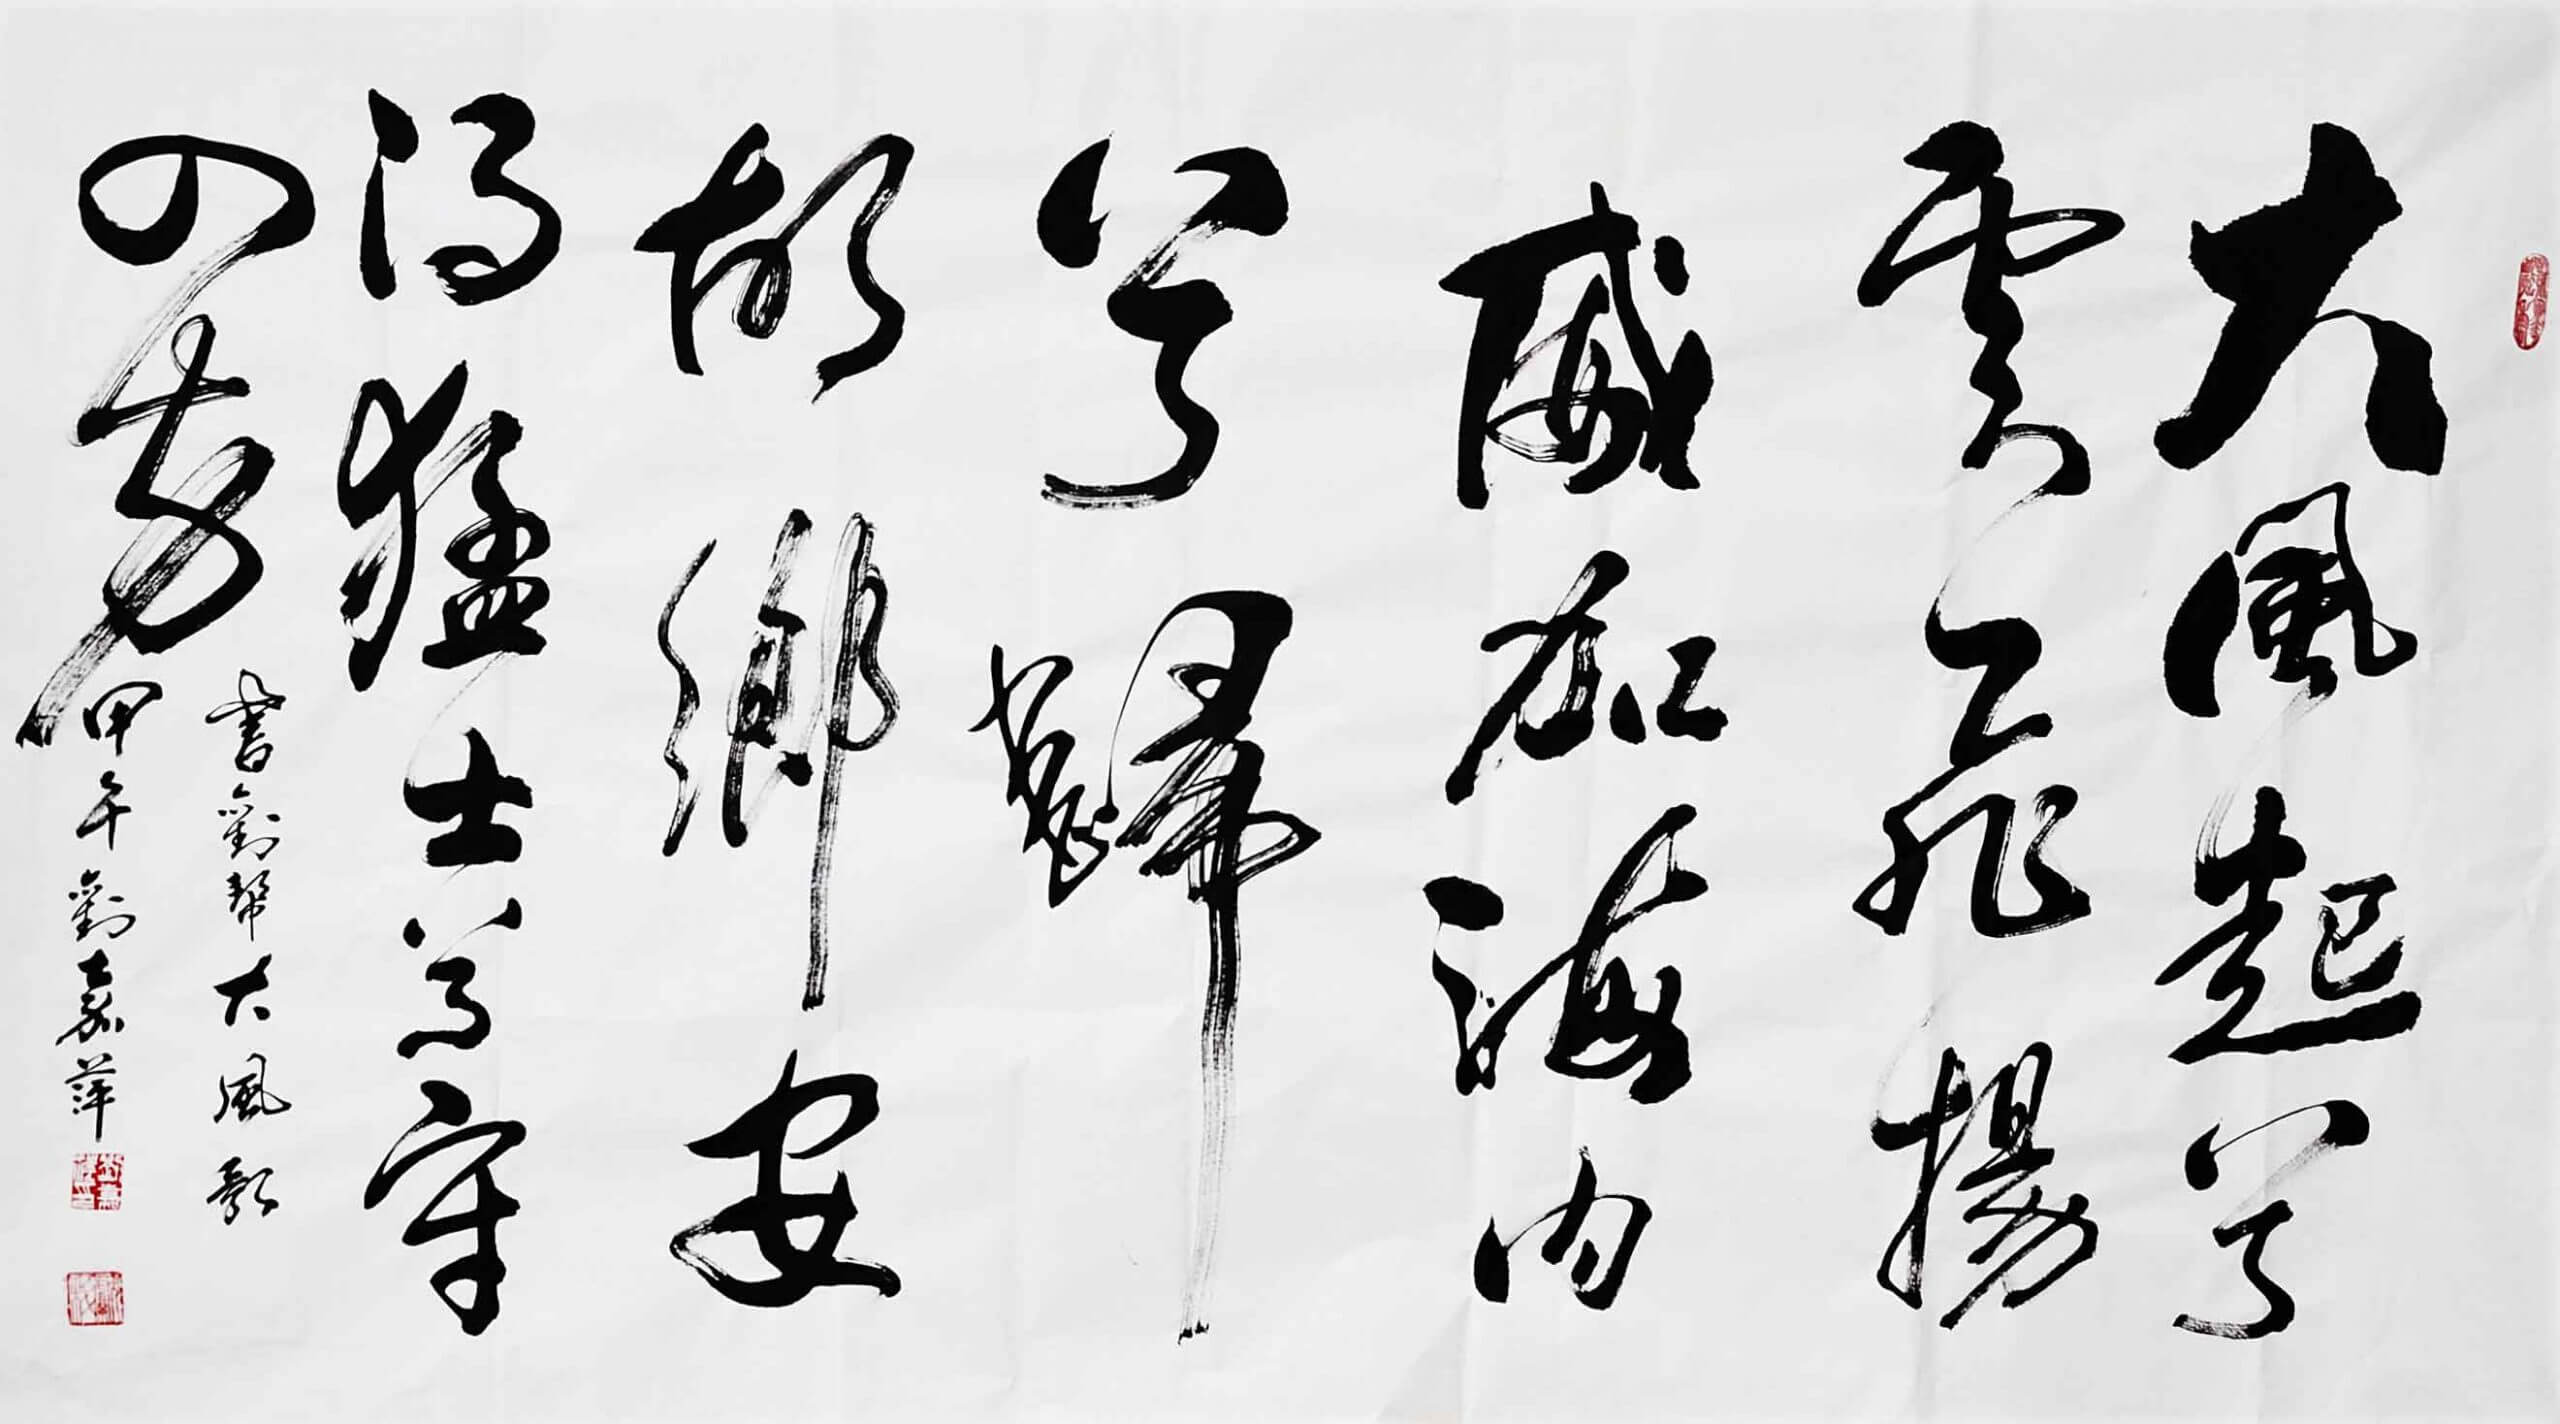 大風起兮
雲飛揚
威加海内
兮歸
故鄉安
得猛士兮守
四方
書劉幫大風歌
甲午劉嘉萍